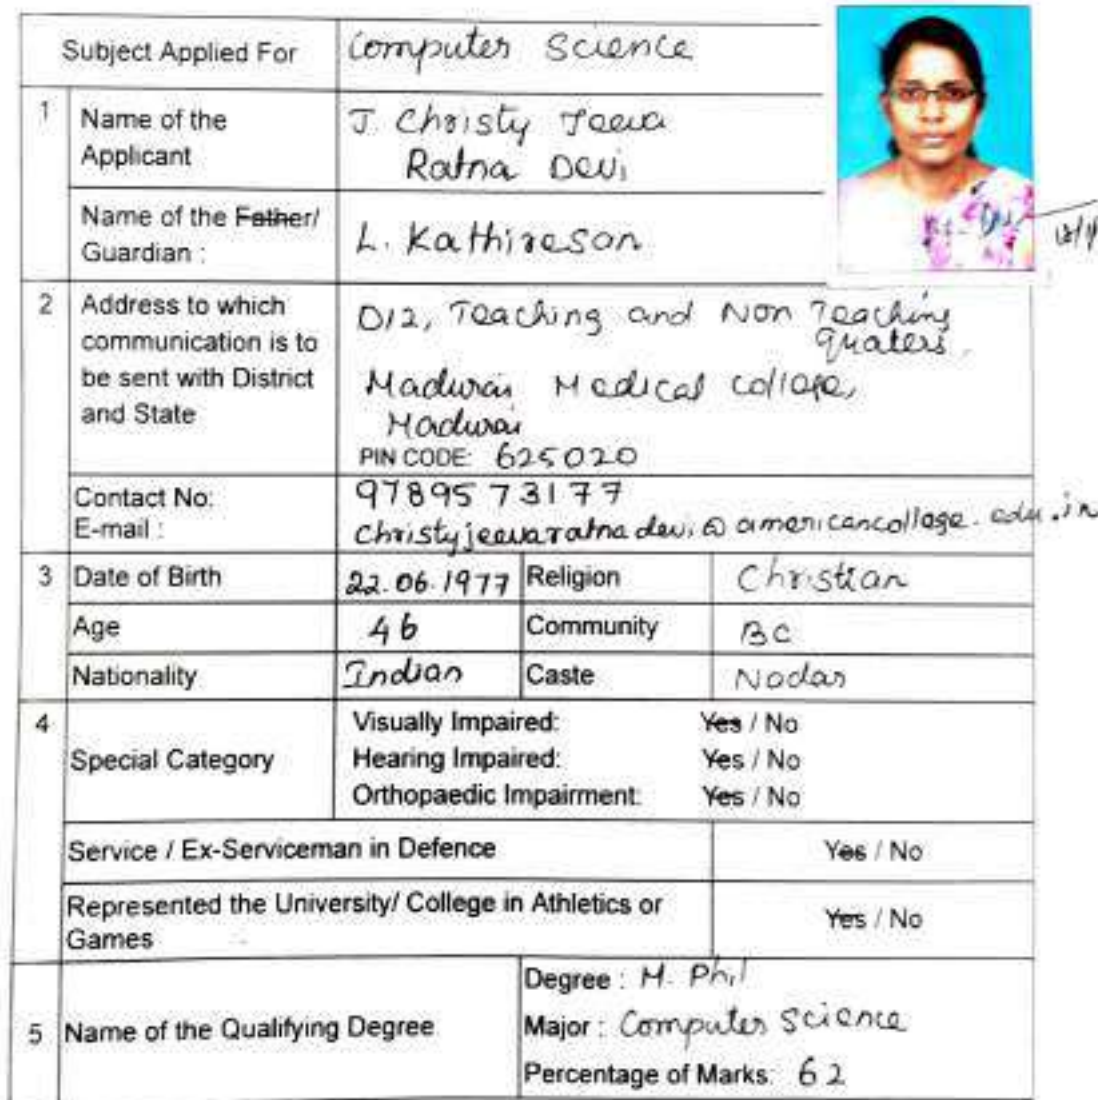 Subject Applied For Computer Science
1 Name of the Applicant J. Christy Jeeva
Ratna Devi
Name of the Father/
Guardian : L. Kathiresan
2 Address to which
communication is to
be sent with District
and State
D12, Teaching and Non Teaching
Quaters,
Madurai Medical College,
Madurai
PIN CODE: 625020
Contact No: 97895 73177
E-mail : christyjeevaratnadevi@americancollege.edu.in
3 Date of Birth 22.06.1977 Religion Christian
Age 46 Community BC
Nationality Indian Caste Nadar
4 Special Category
Visually Impaired: Yes / No
Hearing Impaired: Yes / No
Orthopaedic Impairment: Yes / No
Service / Ex-Serviceman in Defence Yes / No
Represented the University/ College in Athletics or
Games Yes / No
5 Name of the Qualifying Degree
Degree : M. Phil
Major : Computer Science
Percentage of Marks: 62